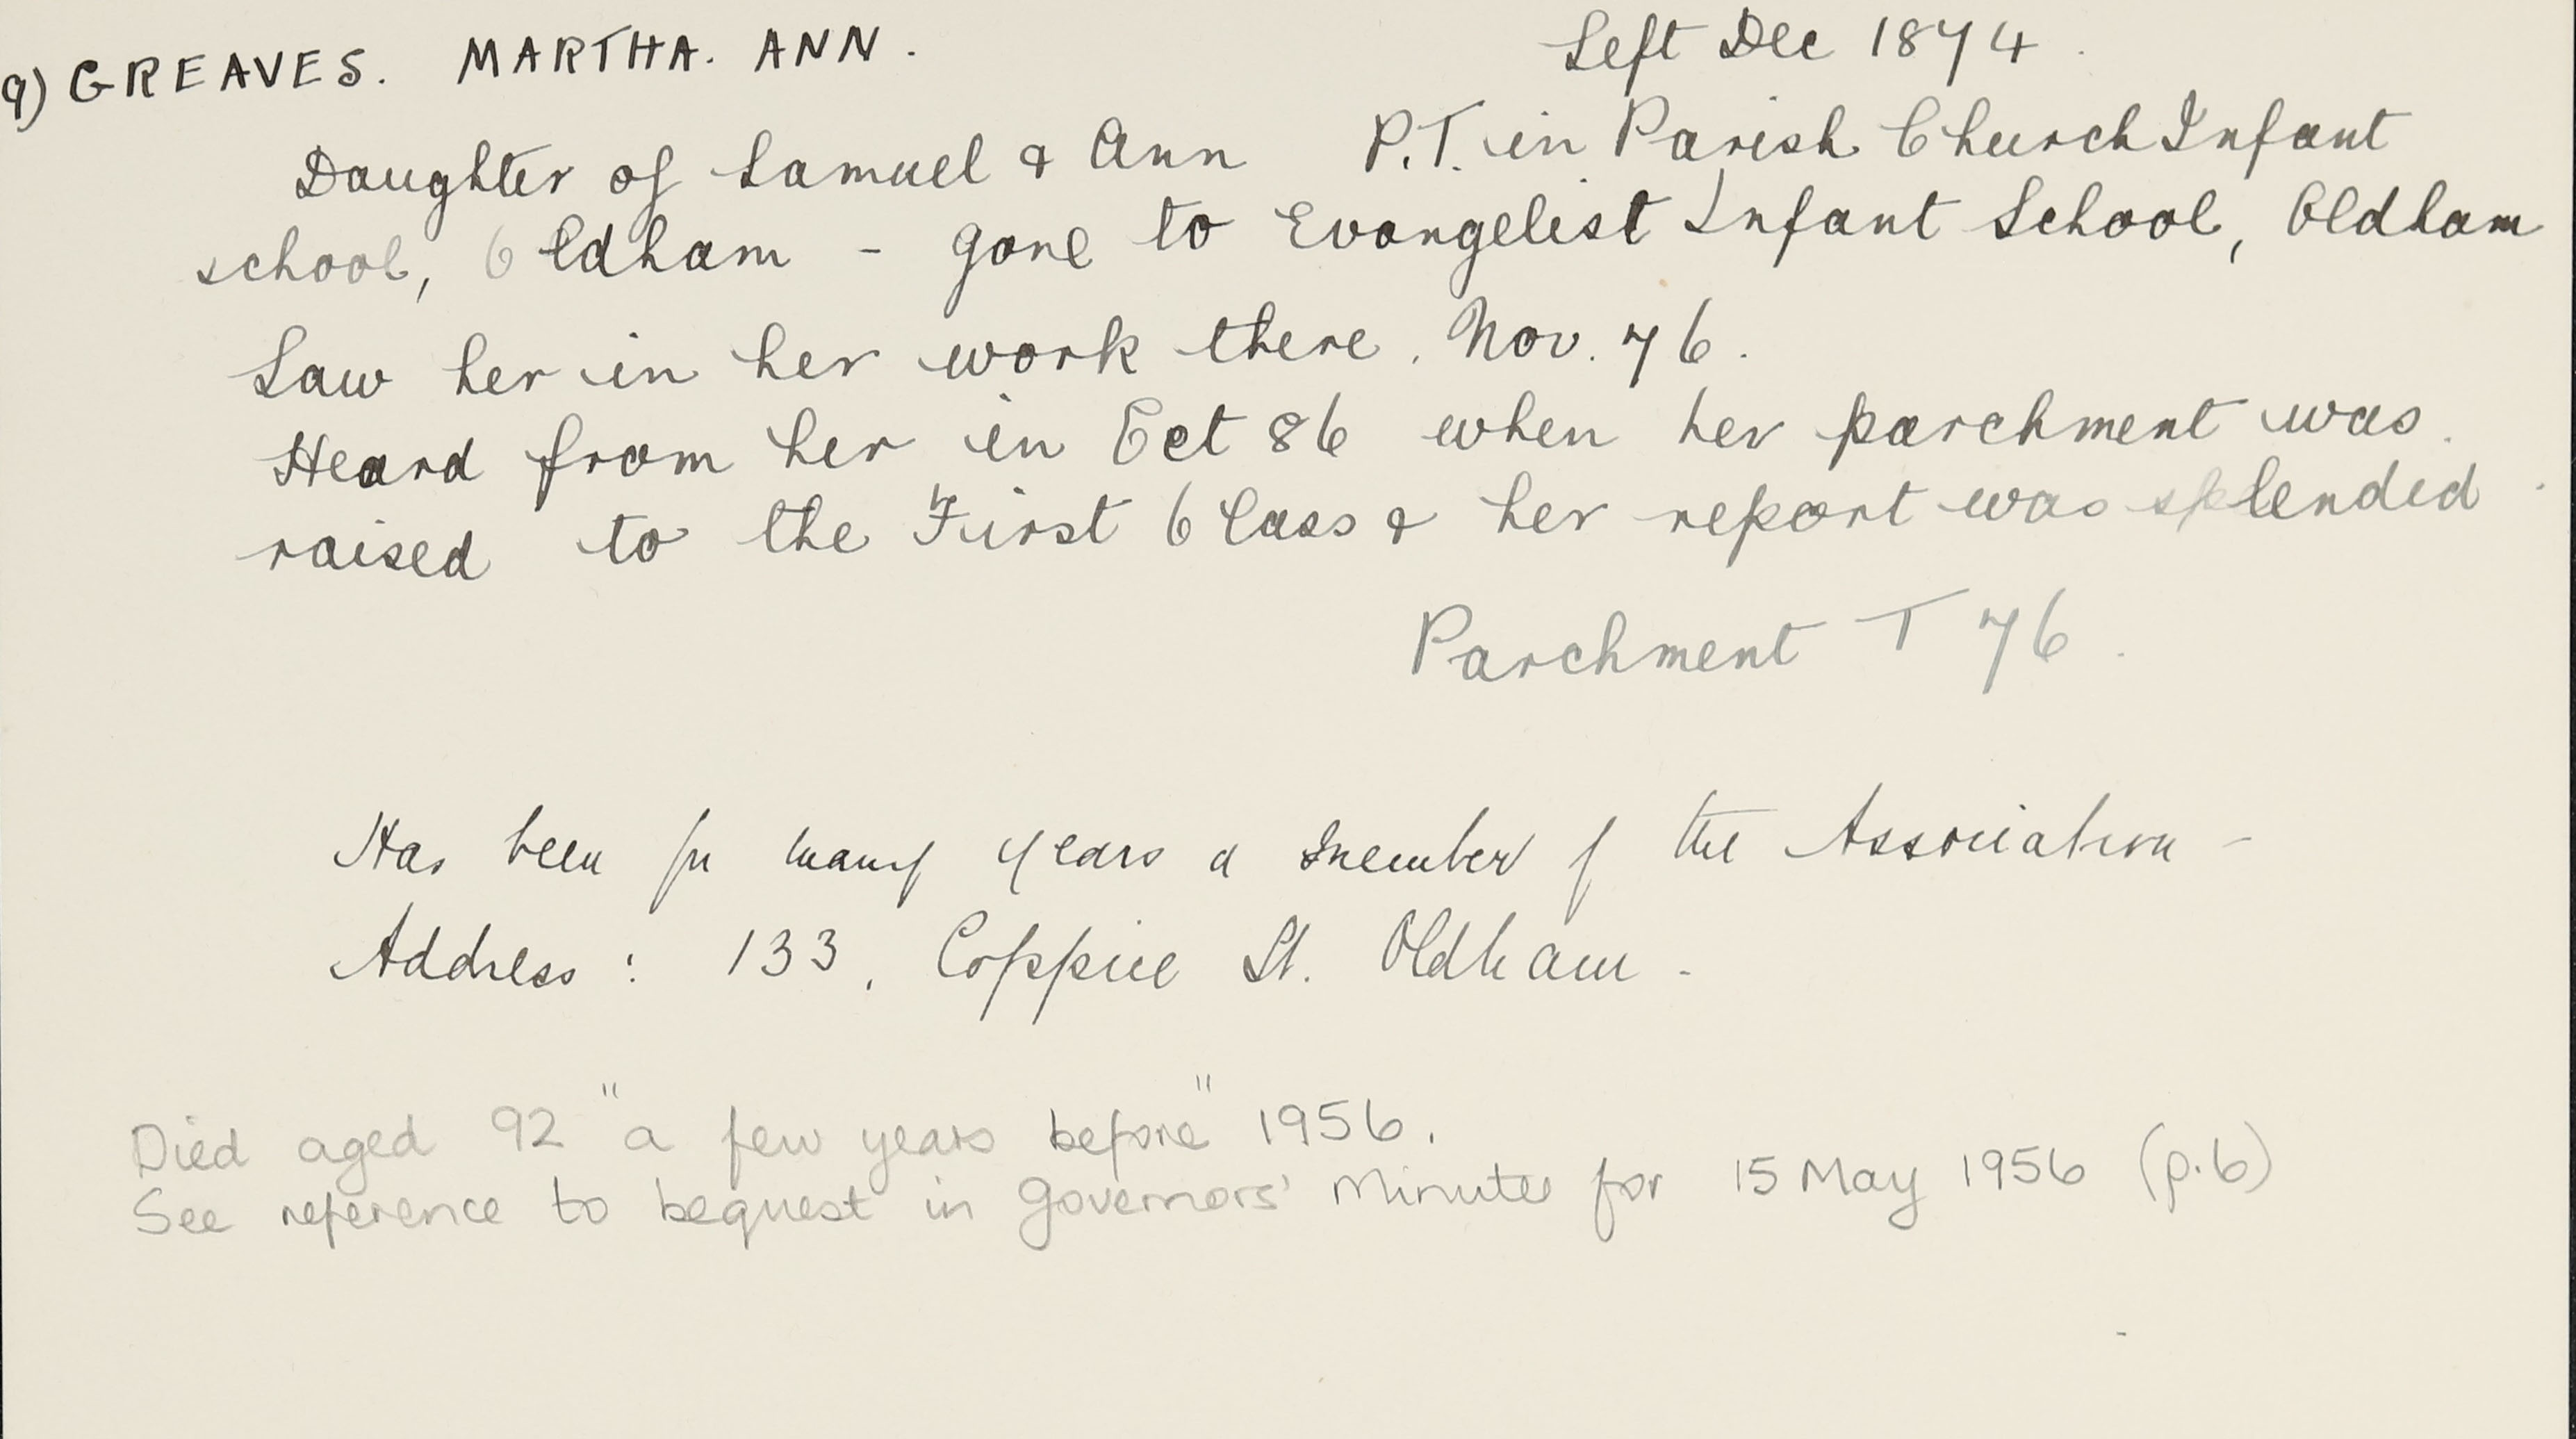 9) GREAVES. MARTHA. ANN. Left Dec 1874.
Daughter of Samuel & Ann P.T. in Parish Church Infant
school, Oldham - gone to Evangelist Infant School, Oldham
Saw her in her work there. Nov. 76.
Heard from her in Oct 86 when her parchment was
raised to the First Class & her report was splendid
Parchment T 76.
Has been for many years a member of the Association -
Address : 133, Coppice St. Oldham -
Died aged 92 "a few years before" 1956.
See reference to bequest in Governors' Minutes for 15 May 1956 (p.6)